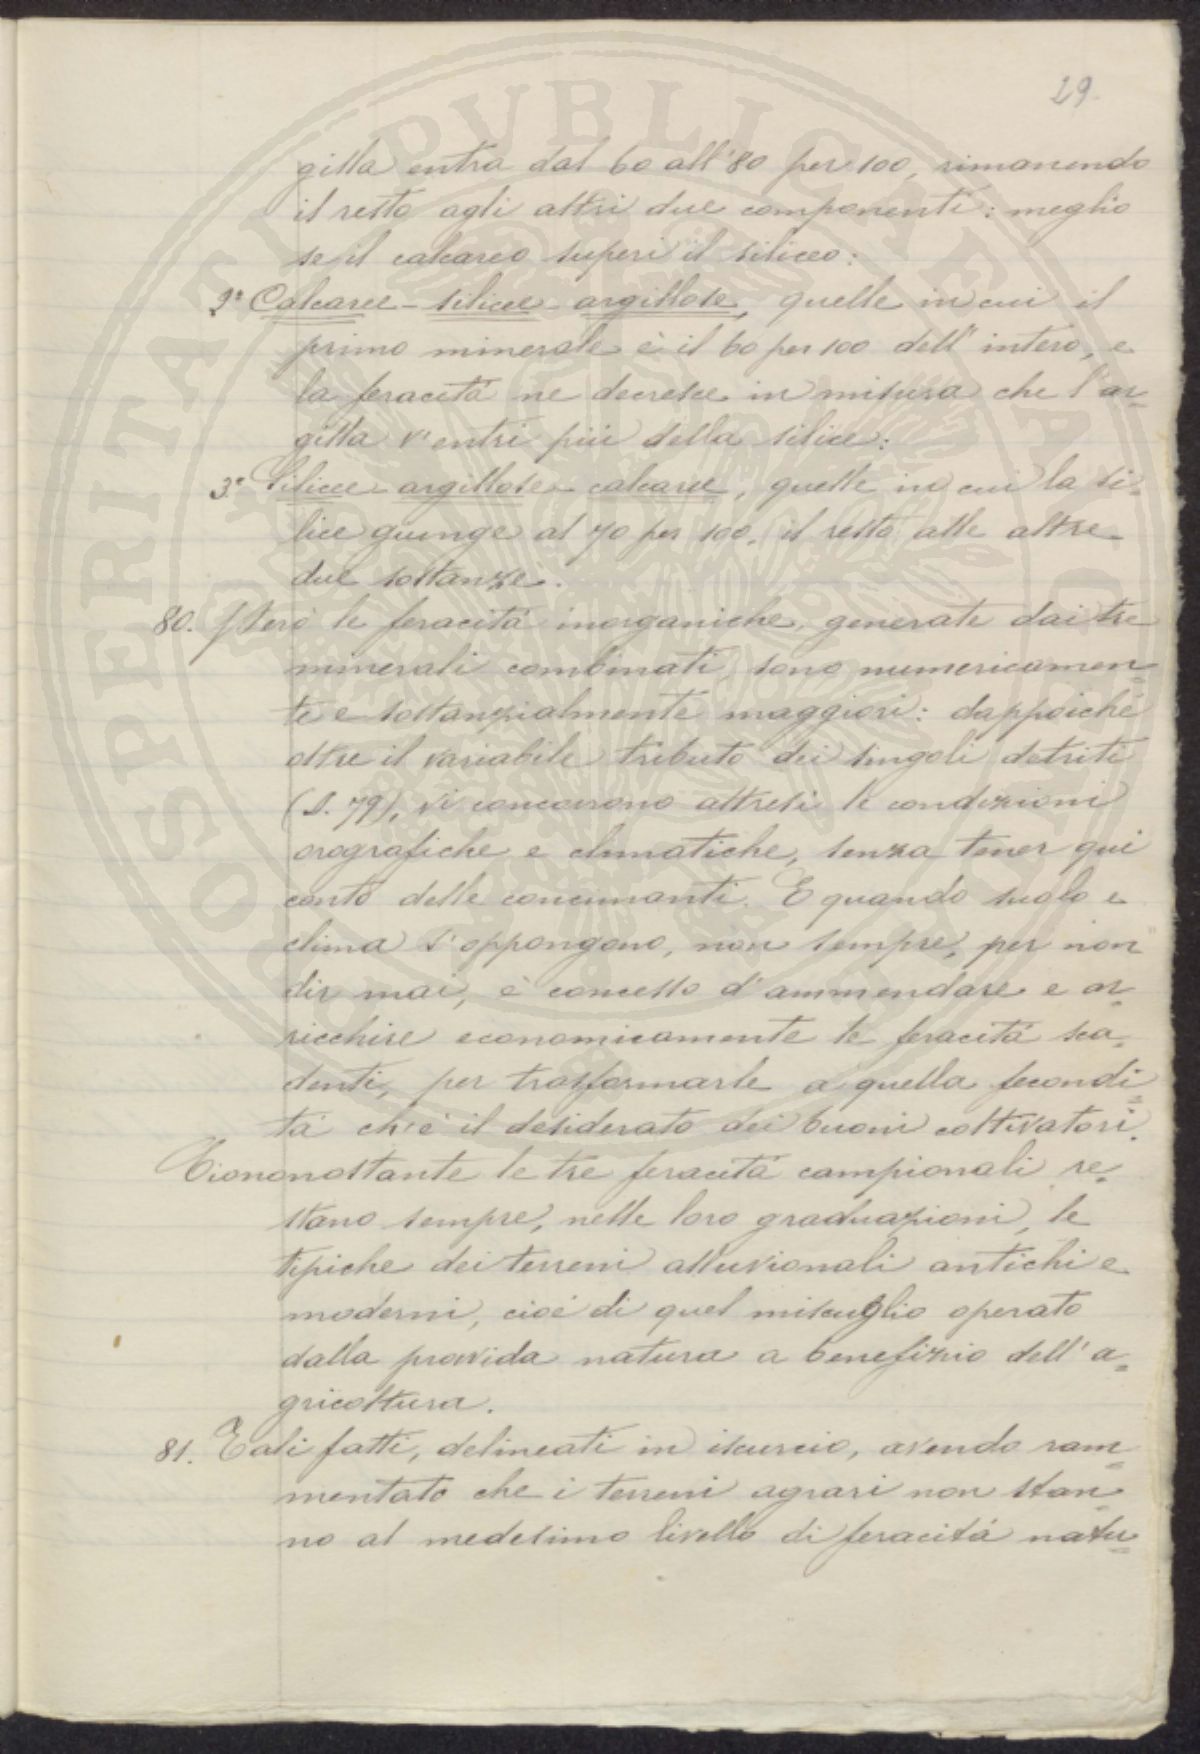 29.
gilla entra dal 60 all'80 per 100, rimanendo
il resto agli altri due componenti: meglio
se il calcareo superi il siliceo:
2° Calcaree - silicee - argillose, quelle in cui il
primo minerale è il 60 per 100 dell'intero, e
la feracità ne decresce in misura che l'ar-
gilla v'entri più della silice:
3° Silicee - argillose - calcaree, quelle in cui la si-
lice giunge al 70 per 100, il resto alle altre
due sostanze.
80. Però le feracità inorganiche, generate dai tre
minerali combinati, sono numericamen-
te e sostanzialmente maggiori: dappoiché
oltre il variabile tributo dei singoli detriti
(§. 79), vi concorrono altresì le condizioni
orografiche e climatiche, senza tener qui
conto delle concimanti. E quando suolo e
clima s'oppongono, non sempre, per non
dir mai, è concesso d'ammendare e ar-
ricchire economicamente le feracità sca-
denti, per trasformarle a quella fecondi-
tà ch'è il desiderato dei buoni coltivatori.
Ciononostante le tre feracità campionali re-
stano sempre, nelle loro graduazioni, le
tipiche dei terreni alluvionali antichi e
moderni, cioè di quel miscuglio operato
dalla provvida natura a benefizio dell'a-
gricoltura.
81. Tali fatti, delineati in iscurcio, avendo ram-
mentato che i terreni agrari non stan-
no al medesimo livello di feracità natu-
PROSPERITATI PUBLICAE AUGENDAE